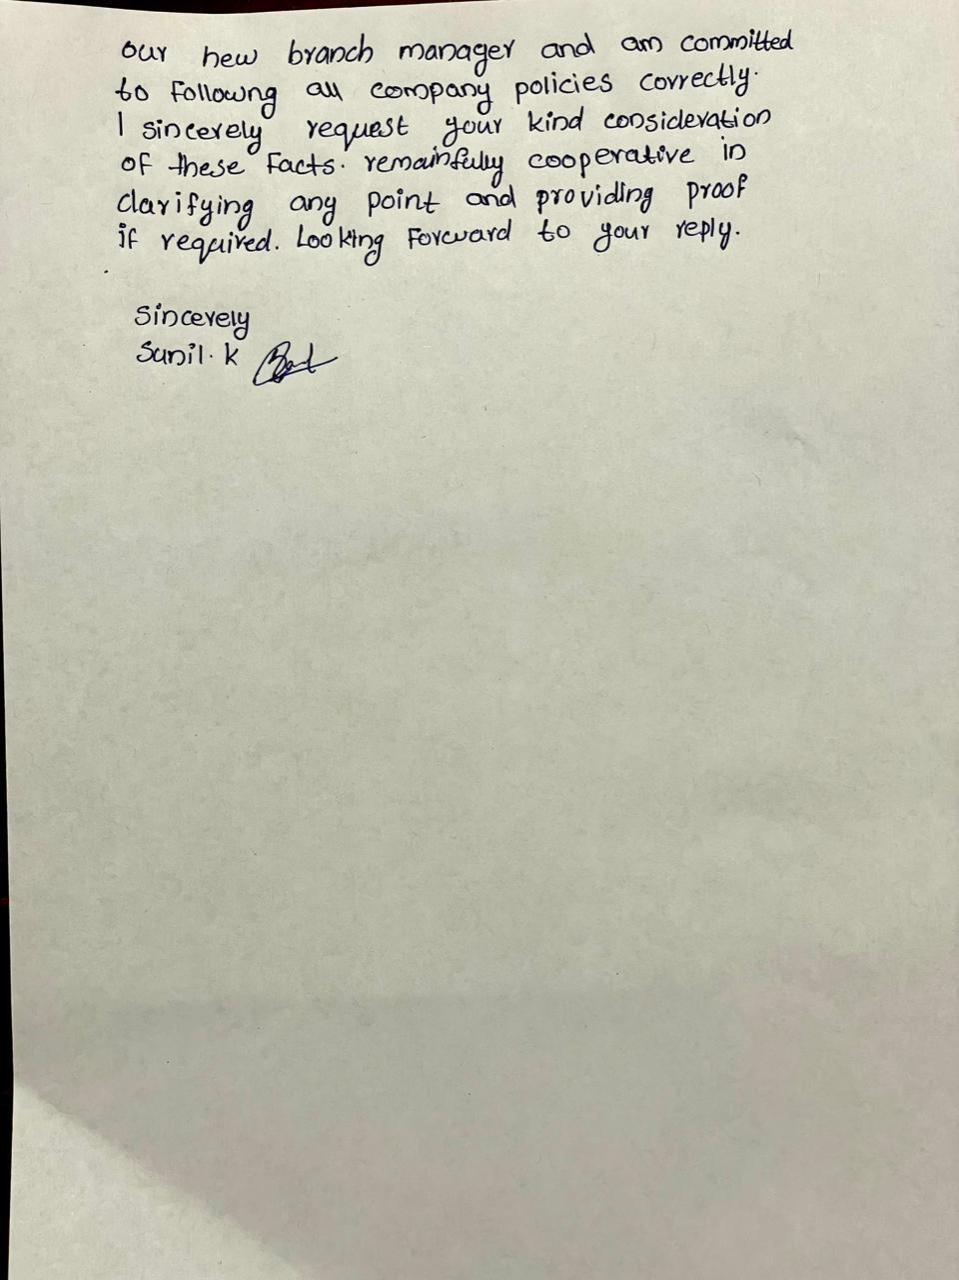 our new branch manager and am committed
to Followng all company policies correctly.
I sincerely request your kind consideration
of these Facts. remainfully cooperative in
clarifying any point and providing proof
if required. Looking Forward to your reply.
Sincerely
Sunil. k